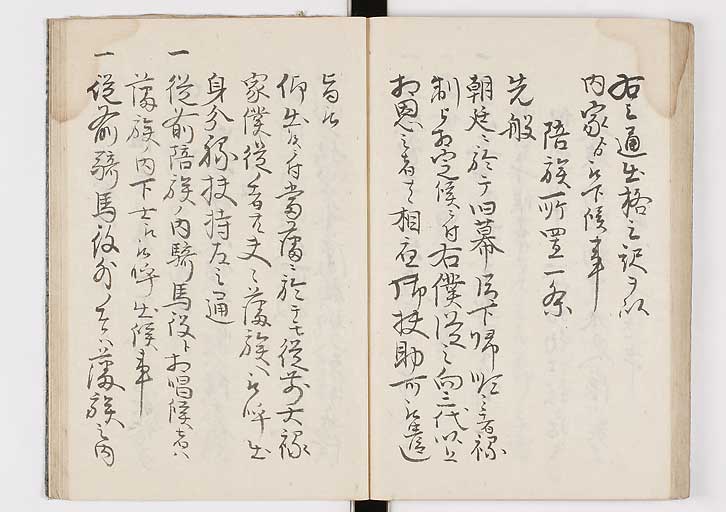 右之通出格之訳ヲ以
内家ゟ被下候事
陪族所置一条
先般
朝廷ニ於テ旧幕臣下帰順之者禄
制被相定候ニ付右僕従之向三代以上
相恩之者者相応御扶助可被遣
旨被
仰出候ニ付当藩ニ於テモ従前大禄
家僕従之者共夫々藩族被呼出
身分禄扶持左之通
一従前陪族ノ内騎馬役ト相唱候者ハ
藩族ノ内下士ニ被呼出候事
一従前騎馬役外ノ者ハ藩族之内